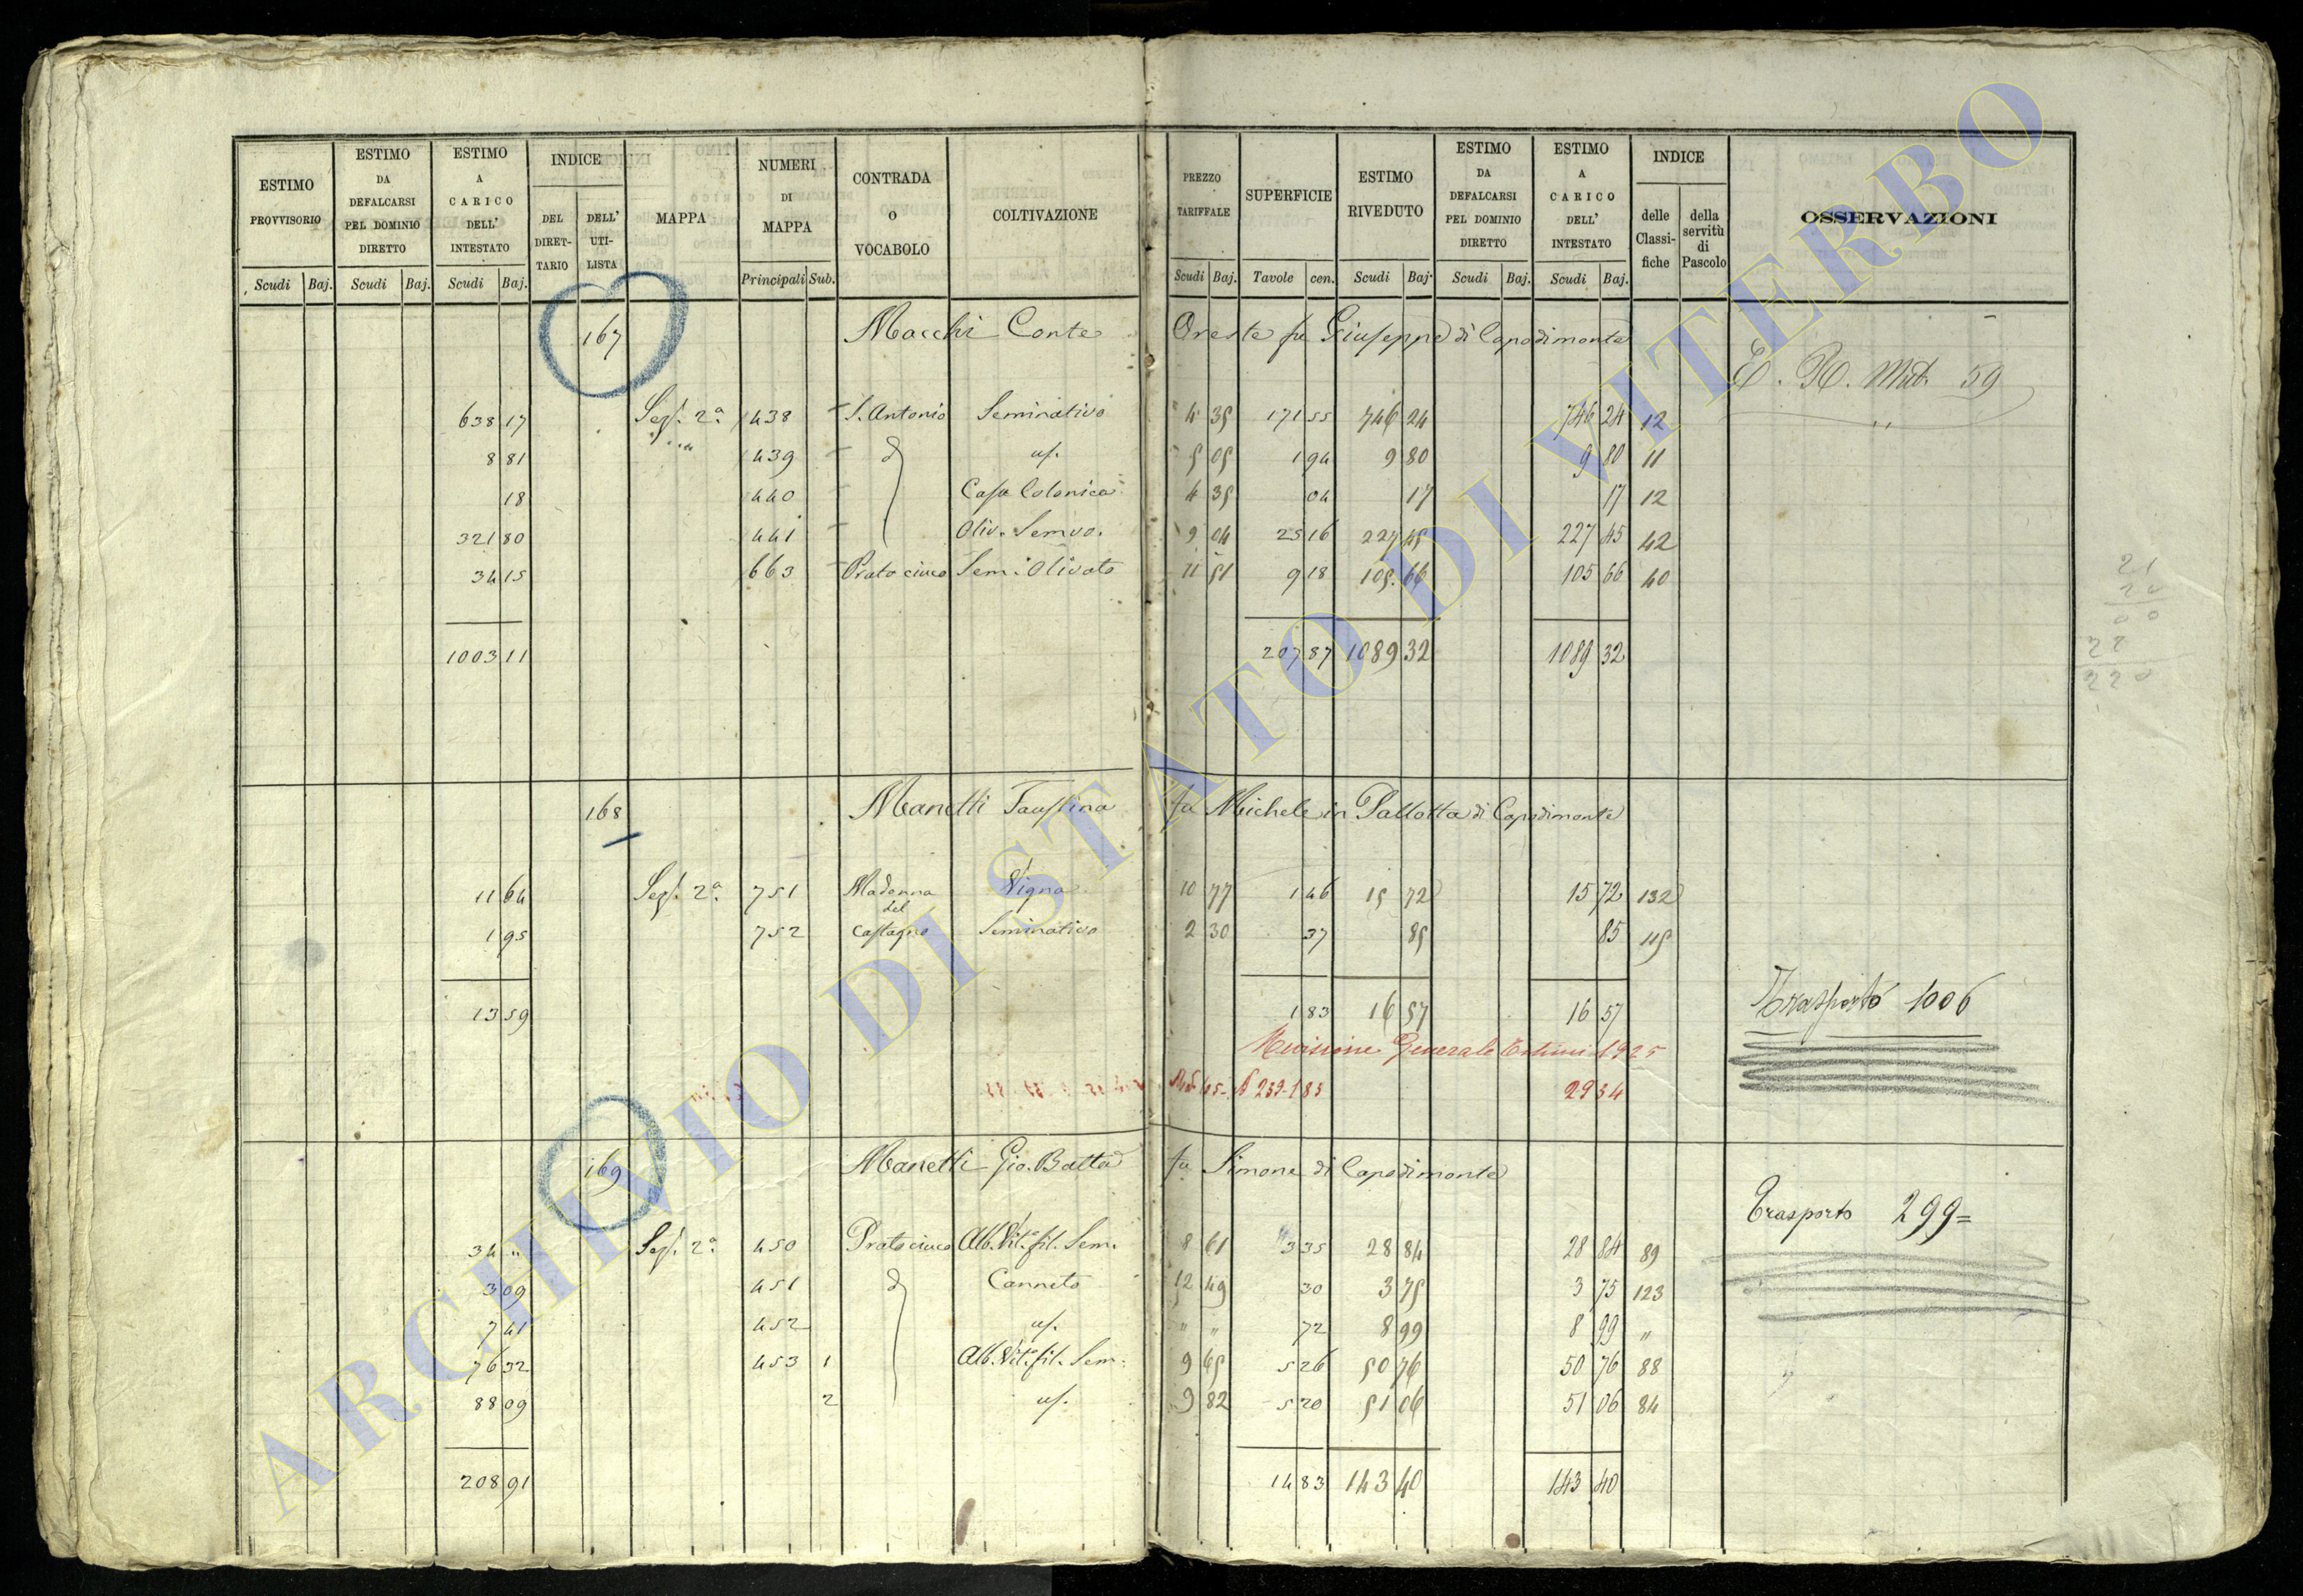 ESTIMO PROVVISORIO | ESTIMO DA DEFALCARSI PEL DOMINIO DIRETTO | ESTIMO A CARICO DELL' INTESTATO | INDICE | MAPPA | NUMERI DI MAPPA | CONTRADA O VOCABOLO | COLTIVAZIONE | PREZZO TARIFFALE | SUPERFICIE | ESTIMO RIVEDUTO | ESTIMO DA DEFALCARSI PEL DOMINIO DIRETTO | ESTIMO A CARICO DELL' INTESTATO | INDICE | OSSERVAZIONI
DEL DIRETTARIO | DELL' UTILISTA | delle Classifiche | della servitù di Pascolo
Scudi | Baj. | Scudi | Baj. | Scudi | Baj. | Principali | Sub. | Scudi | Baj. | Tavole | cen. | Scudi | Baj. | Scudi | Baj. | Scudi | Baj.
167 Macchi Conte Oreste fu Giuseppe di Capodimonte
59
638 17 Sez. 2a 438 S. Antonio Seminativo 4 35 171 55 746 24 746 24 12
8 81 439 d us. 5 05 1 94 9 80 9 80 11
18 440 Casa Colonica 4 35 04 17 17 12
321 80 441 Oliv. Semvo. 9 04 25 16 227 45 227 45 42
34 15 663 Prato cinco Sem. Olivato 11 51 9 18 105 66 105 66 40
1003 11 207 87 1089 32 1089 32
21
20
00
22
220
168 Manetti Faustina fu Michele in Pallotta di Capodimonte
11 64 Sez. 2a 751 Madonna del Vigna 10 77 1 46 15 72 15 72 132
1 95 752 Castagno Seminativo 2 30 37 85 85 115
13 59 1 83 16 57 16 57
Trasporto 1006
Revisione Generale Estimi 1925
239 - 1 83 29 34
169 Manetti Gio. Batta fu Simone di Capodimonte
Trasporto 299=
34 " Sez. 2a 450 Prato cinco Alb. Vit. fil. Sem. 8 61 3 35 28 84 28 84 89
3 09 451 d Canneto 12 49 30 3 75 3 75 123
7 41 452 us. " " 72 8 99 8 99 "
76 32 453 1 Alb. Vit. fil. Sem. 9 65 5 26 50 76 50 76 88
88 09 2 us. 9 82 5 20 51 06 51 06 84
208 91 14 83 143 40 143 40
ARCHIVIO DI STATO DI VITERBO